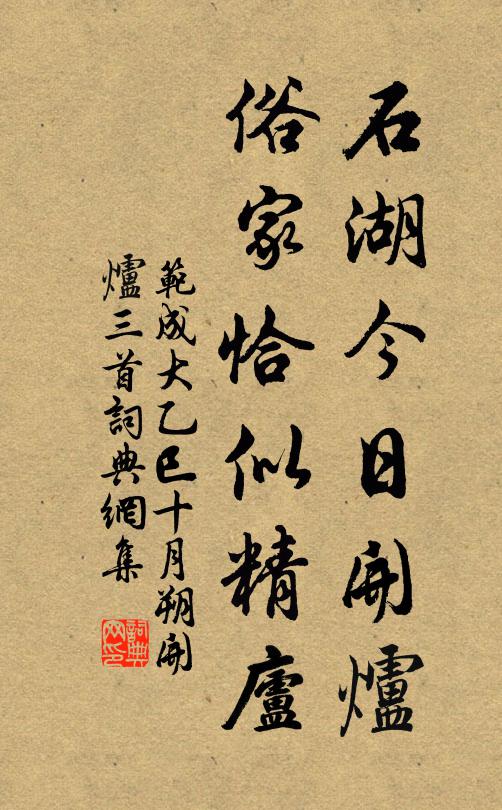 石湖今日開爐
俗家恰似精廬
範成大乙巳十月朔開
爐三首詞典網集
詞典
网印